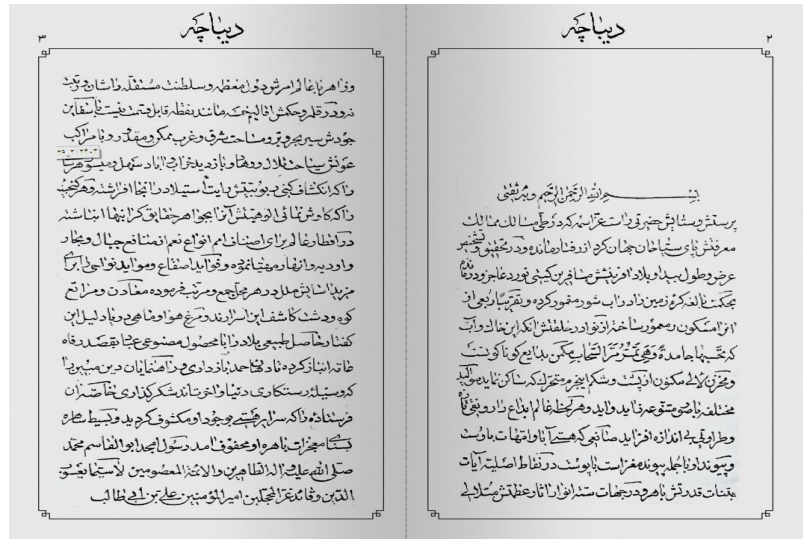 دیباچه
۲
بسم الله الرحمن الرحیم وبه ثقتی
پرستش وستایش حضرتی راست عز اسمه که در طی مسالک ممالک
معرفتش پای سیاحان جهان کرد از رفتار مانده ودر تحقیق و تسخیر
عرض وطول بیدا وبلاد
بحکمت بالغه کره زمین را در آب شور مغمور کرده و تقریبا ربعی از
انرا مسکون ومعمور ساخته از نوادر خلقتش انکه این خاک وآب
که تحسبها جامدة وهی تمر مر السحاب ممکن بدایع کوناکونست
ومخزن لآلی مکنون از پشت وشکم
مختلفه باصور متنوعه زاید و هر لحظه عالم ابداع را رونقی تازه
وطراوتی بی اندازه افزاید صانعی که هستی آبا وامهات با اوست
وپیوند او با جمله پیوند مغز است با پوست در نقاط اصلیه آیات
بینات قدرتش باهر ودر جهات سته انوار آثار عظمتش متلالی
دیباچه
۳
وظاهر با عالم امرش دول معظمه وسلطنت مستقله را شان ورتبت
نه ودر قلم رو حکمش اقالیم خمسه مانند نقطه قابل قسمت نیست با سفاین
جودش سیر بحر وبر ومساحت شرق وغرب ممکن ومقدر وبا مراکب
عونش سیاحت تلال ووهاد وبازدید خراب اباد سهل ومیسر هر
را که اکتشاف کنی ربوبیتش رایت استیلا در انجا افراشته وهر کنجینه
را که کاوش نمائی الوهیتش آنرا بجواهر حقایق کرانبها انباشته
در اقطار عالم برای اصناف امم انواع نعم از منافع جبال وبحار
واودیه وانهار مهیا نموده وفواید اصقاع وموائد نواحی را برای
مزید آسایش ملل در هر مجامع ومرتب فرموده معادن ومراتع
کوه ودشت کاشف این اسرارند ومرغ هوا وماهی دریا دلیل این
کفتار حاصل طبیعی بلاد را با محصول مصنوعی عباد بقصد رفاه
عامه انباز کرده تا دقایق حمد باز داری وراهنمایان دین مبین را
که وسیله رستکاری دنیا واخرتند شکر کذاری خاصه ان
فرستاده را که سرایر هستی بوجود او مکشوف کردید وبسیط ساده
معجزات باهره او محفوف امد رسول امجد ابوالقاسم محمد
صلی الله علیه واله الطاهرین والائمة المعصومین لاسیما یعسوب
الدین وقائد غر المحجلین امیر المؤمنین علی بن ابی طالب